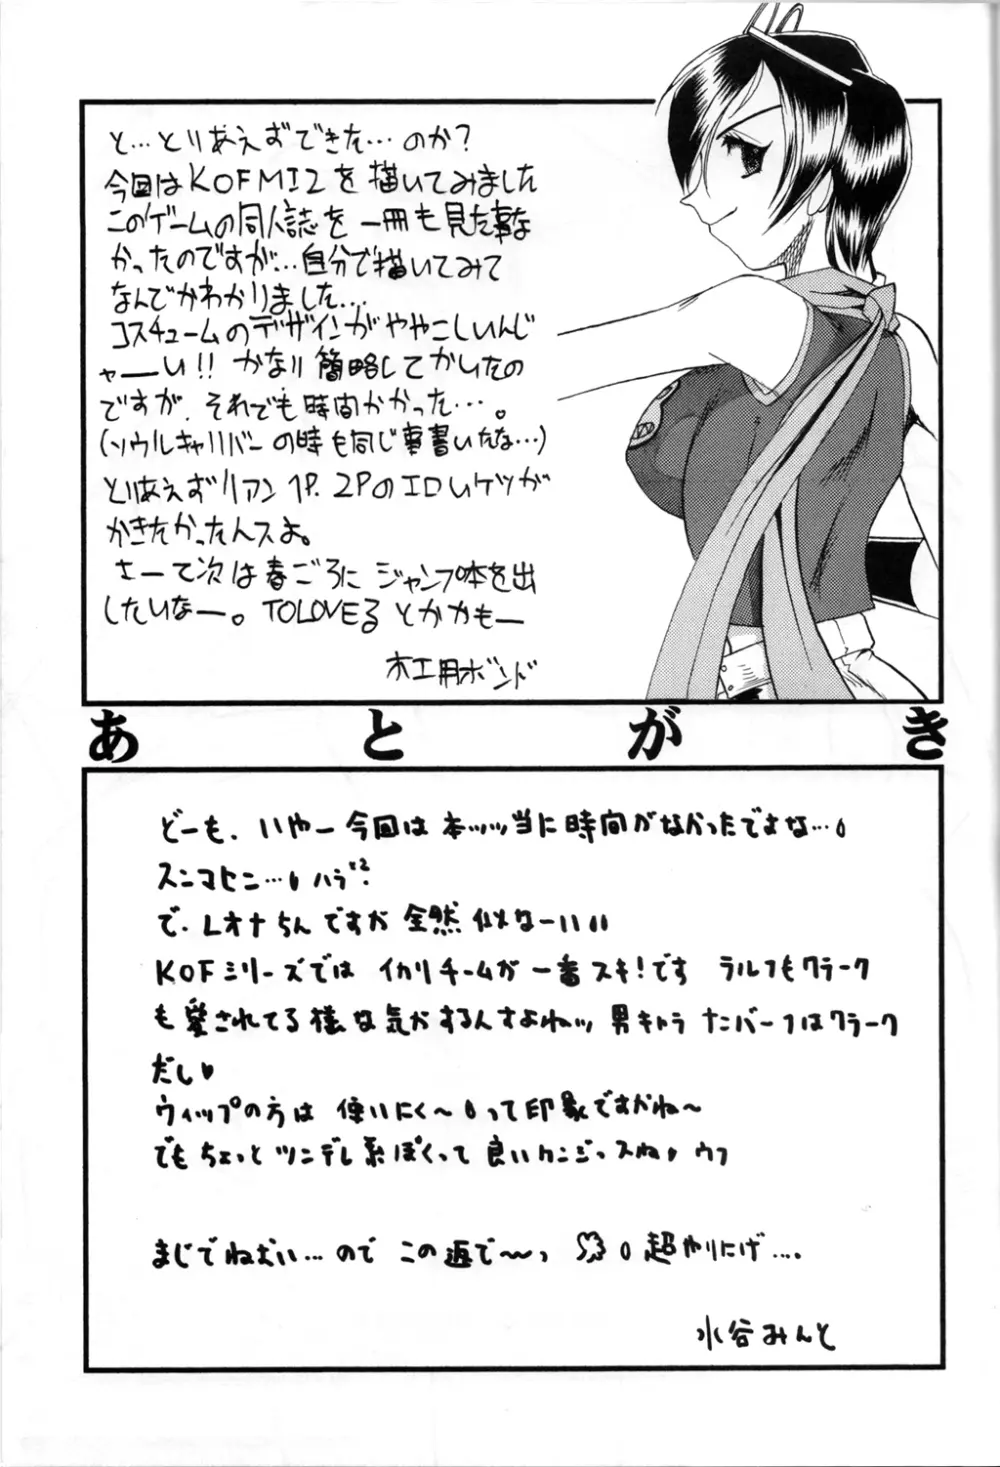 と…とりあえずできた…のか？
今回はKOFMI2を描いてみました
このゲームの同人誌を一冊も見た事な
かったのですが…自分で描いてみて
なんでかわかりました…
コスチュームのデザインがややこしいんじ
ゃーい!! かなり簡略してかいたの
ですが、それでも時間かかった…。
(ソウルキャリバーの時も同じ事書いたな…)
とりあえずリアン1P.2PのエロいケツがFが
かきたかったんスよ。
さーて次は春ごろにジャンプ本を出
したいなー。TOLOVEるとかかもー
木工用ボンド
あとがき
どーも、いやー今回は本ッッ当に時間がなかったですよな…
スンマヒン…
で、レオナちんですが全然似なーい
KOFシリーズではイカリチームが一番スキ!です ラルフもクラーク
も愛されてる様な気がするんすよねッ 男キャラナンバー1はクラーク
だし♥
ウィップの方は使いにく〜いって印象ですかね〜
でもちょっとツンデレ系ぽくって良いカンジっスね♥ウフ
まじでねむい…のでこの返で〜っ 超やりにげ….
水谷みんと